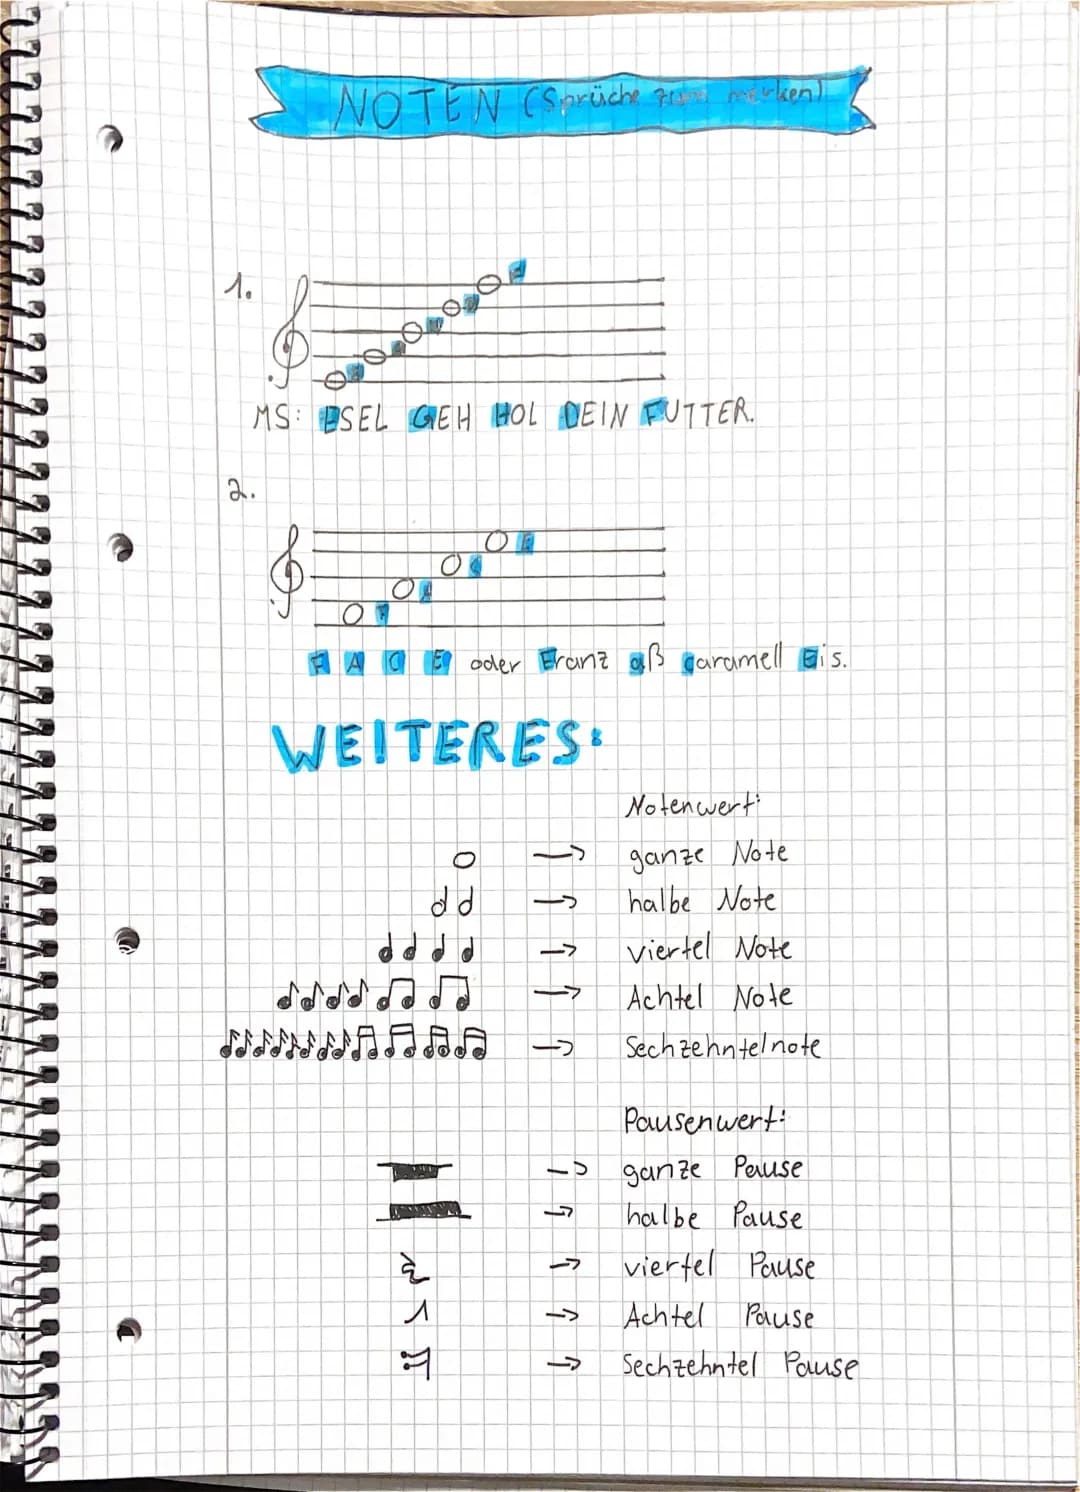 NOTEN (Sprüche zum merken)
1.
E G H D F
MS: ESEL GEH HOL DEIN FUTTER.
2.
F A C E
F A C E oder Franz aß Caramell Eis.
WEITERES:
Notenwert:
→ ganze Note
→ halbe Note
→ viertel Note
→ Achtel Note
→ Sechzehntelnote
Pausenwert:
→ ganze Pause
→ halbe Pause
→ viertel Pause
→ Achtel Pause
→ Sechzehntel Pause